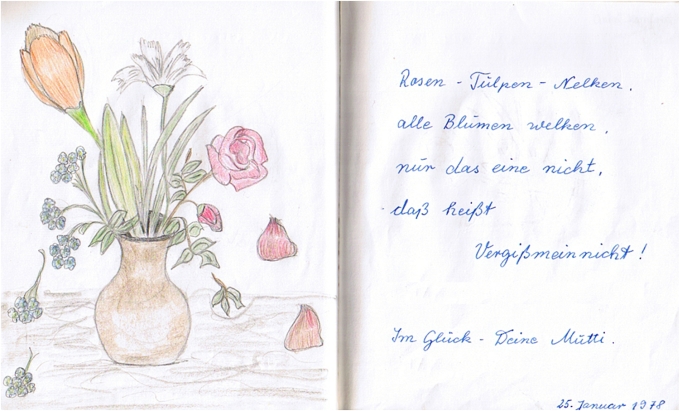 Rosen - Tulpen - Nelken,
alle Blumen welken,
nur das eine nicht,
daß heißt
Vergißmeinnicht!
Im Glück - Deine Mutti.
25. Januar 1978